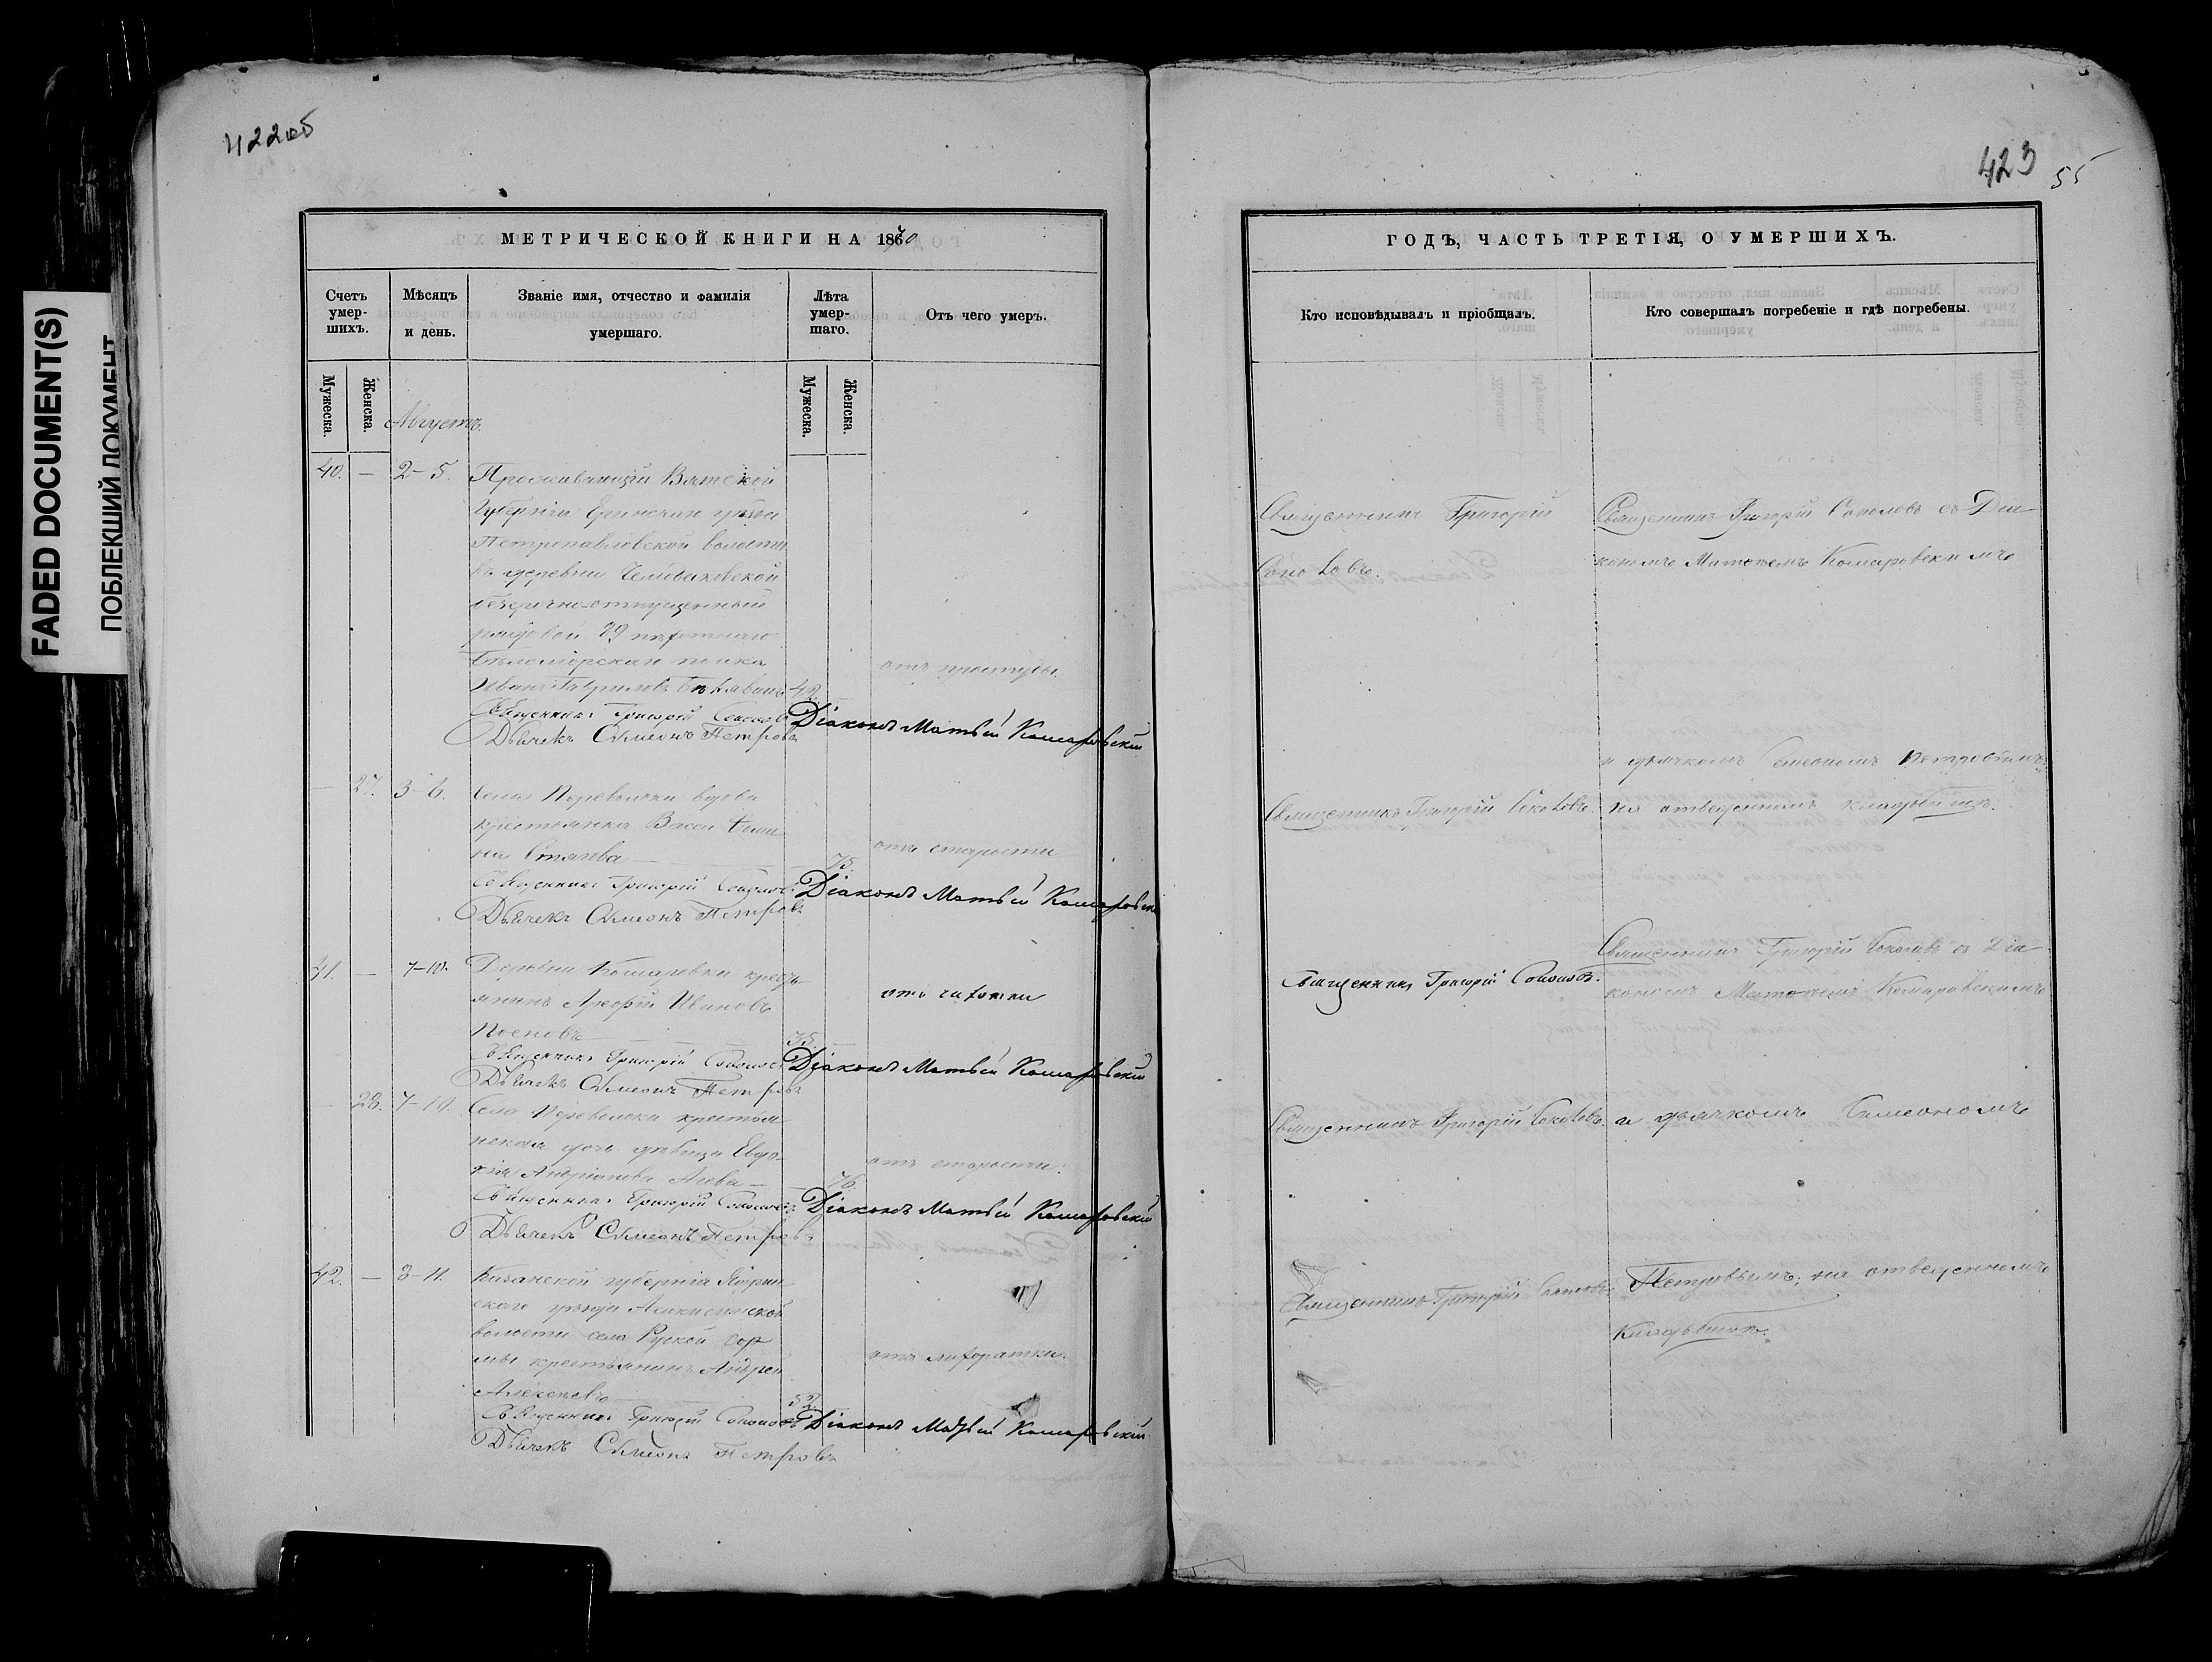 FADED DOCUMENT(S)
ПОБЛЕКШИЙ ДОКУМЕНТ
422об
МЕТРИЧЕСКОЙ КНИГИ НА 1870
Счетъ умер-шихъ.
Мѣсяцъ и день.
Званіе имя, отчество и фамилія умершаго.
Лѣта умер-шаго.
Отъ чего умеръ.
Мужеска.
Женска.
Мужеска.
Женска.
Августъ.
40. — 2-5. Проживающій Вятской
Губерніи уѣзда
Петропавловской волости
въ деревни
безсрочно-отпущенный
рядовой 89 пѣхотнаго
Бѣломорскаго полка отъ простуды.
Иванъ Гавриловъ 42.
Священникъ Григорій Соколовъ Діаконъ Матвѣй Комаровскій
Дьячекъ Симеонъ Петровъ
— 27. 3-6. Села Переволоки вдова
крестьянка Васса
на отъ старости
75.
Священникъ Григорій Соколовъ Діаконъ Матвѣй Комаровскій
Дьячекъ Симеонъ Петровъ
41. — 7-10. Деревни Комаровки кресть-
янинъ Андрей Ивановъ отъ чахотки
35.
Священникъ Григорій Соколовъ Діаконъ Матвѣй Комаровскій
Дьячекъ Симеонъ Петровъ
— 28. 7-10. Села Переволоки крестья
нская дочь дѣвица Евдо-
кія Андріанова отъ старости.
76.
Священникъ Григорій Соколовъ Діаконъ Матвѣй Комаровскій
Дьячекъ Симеонъ Петровъ
42. — 8-11. Казанской губерніи Ядрин
скаго уѣзда
волости села Руской Сор
мы крестьянинъ Андрей отъ лихоратки.
Алексѣевъ 52
Священникъ Григорій Соколовъ Діаконъ Матвѣй Комаровскій
Дьячекъ Симеонъ Петровъ
423 55
ГОДЪ, ЧАСТЬ ТРЕТІЯ, О УМЕРШИХЪ.
Кто исповѣдывалъ и пріобщалъ.
Кто совершалъ погребеніе и гдѣ погребены.
Священникъ Григорій
Соколовъ.
Священникъ Григорій Соколовъ съ Діа-
кономъ Матөеемъ Комаровскимъ
и дьячкомъ Симеономъ Петровымъ
Священникъ Григорій Соколовъ. на отведенномъ кладбищѣ.
Священникъ Григорій Соколовъ съ Діа
Священникъ Григорій Соколовъ.
кономъ Матөеемъ Комаровскимъ
Священникъ Григорій Соколовъ. и дьячкомъ Симеономъ
Священникъ Григорій Соколовъ Петровымъ; на отведенномъ
кладбищѣ.